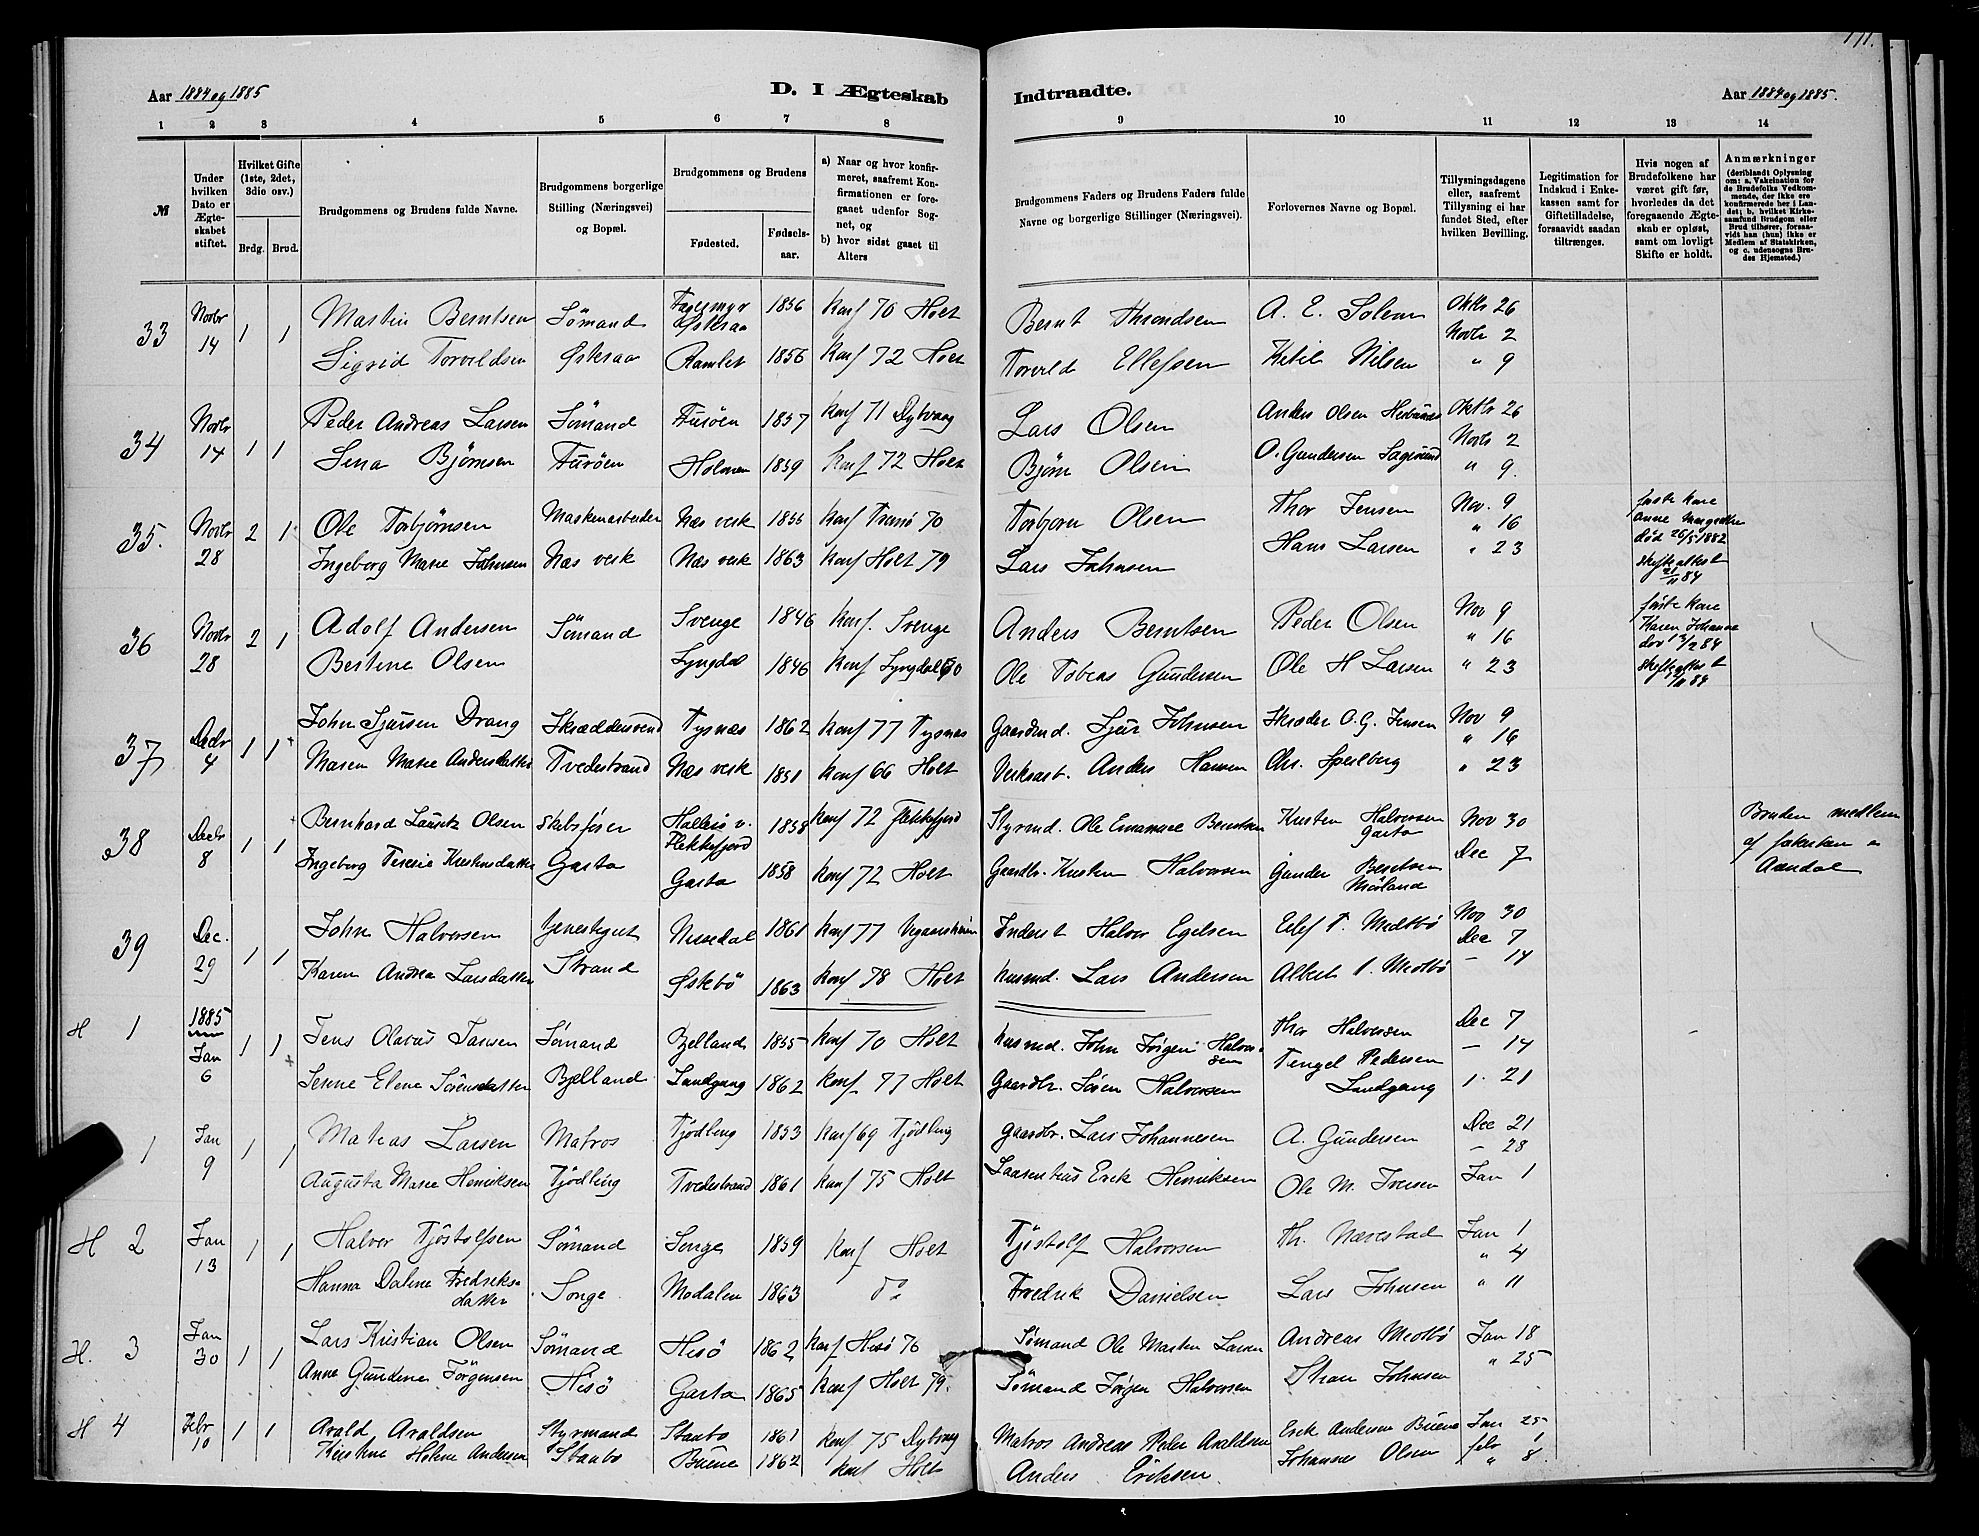 171.
Aar 1884 og 1885
D. I Ægteskab
Indtraadte.
Aar 1884 og 1885.
1 2 3 4 5 6 7 8 9 10 11 12 13 14
№
Under hvilken Dato er Ægteskabet stiftet.
Hvilket Gifte (1ste, 2det, 3die osv.)
Brdg. Brud.
Brudgommens og Brudens fulde Navne.
Brudgommens borgerlige Stilling (Næringsvei) og Bopæl.
Brudgommens og Brudens
Fødested. Fødselsaar.
a) Naar og hvor konfirmeret, saafremt Konfirmationen er foregaaet udenfor Sognet, og
b) hvor sidst gaaet til Alters
Brudgommens Faders og Brudens Faders fulde Navne og borgerlige Stillinger (Næringsvei).
Forlovernes Navne og Bopæl.
Tillysningsdagene eller, saafremt Tillysning ei har fundet Sted, efter hvilken Bevilling.
Legitimation for Indskud i Enkekassen samt for Giftetilladelse, forsaavidt saadan tiltrænges.
Hvis nogen af Brudefolkene har været gift før, hvorledes da det foregaaende Ægteskab er opløst, samt om lovligt Skifte er holdt.
Anmærkninger (deriblandt Oplysning om: a. Vakcination for de Brudefolks Vedkommende, der ikke ere konfirmerede her i Landet; b, hvilket Kirkesamfund Brudgom eller Brud tilhører, forsaavidt han (hun) ikke er Medlem af Statskirken, og c. udensogns Brudes Hjemsted.)
33 Novbr 14 1 1 Martin Berntsen Sømand Fagermyr Østeraa 1856 konf 70 Holt Bernt Throndsen A. E. Solem Oktbr 26
Novbr 2
Sigrid Torvildsen Østeraa Ramlet 1856 konf 72 Holt Torvild Ellefsen Ketil Nilsen " 9
34 Novbr 14 1 1 Peder Andreas Larsen Sømand Furøen 1857 konf 71 Dybvaag Lars Olsen Anders Olsen Oktbr 26
Novbr 2
Lina Bjørnsen Furøen Holmen 1859 konf 72 Holt Bjørn Olsen O. Gundersen Sagesund " 9.
35. Novbr 28 2 1 Ole Torbjørnsen Maskenarbeider Næs verk 1855 konf Tromø 70 Torbjørn Olsen Thor Jensen Nov. 9
" 16
Ingeborg Marie Johnsen Næs verk Næs verk 1863 konf Holt 79 Lars Johnsen Hans Larsen " 23
første kone
Anne Margrethe
død 26/5 1882
skifteattest
21/11 84
36 Novbr 28 2 1 Adolf Andersen Sømand Svenge 1846 konf. Svenge Anders Berntsen Peder Olsen Nov 9
" 16
Bertine Olsen Lyngdal 1846 konf Lyngdal 60 Ole Tobias Gundersen Ole H Larsen " 23
første kone
Karen Johanne
skifteattest
37 Decbr 4 1 1 John Sjursen Drang Skræddersvend Tysnæs 1862 konf 77 Tysnæs Gaardmd. Sjur Johnsen Skræder O. G. Jensen Nov 9
" 16
Maren Marie Andersdatter Tvedestrand Næs verk 1851 konf 66 Holt Verksarb. Anders Hansen Chr. Speilberg " 23
38 Decbr 8 1 1 Bernhard Lauritz Olsen Skibsfører Flekkefjord 1858 konf 72 Flekkefjord Styrmd. Ole Emanuel Berentsen Kristen Halvorsen Gasta Nov 30
Ingeborg Teresie Kristensdatter Gasta Gasta 1858 konf 72 Holt Gaardbr. Kristen Halvorsen Gunder Berntsen Mørland Dec 7
Bruden medlem
39 Dec. 29 1 1 John Halvorsen Tjenestegut Nissedal 1861 konf 77 Vegaarsheien Inderst Halvor Egelsen Elef T. Medbø Nov 30
Dec 7
Karen Andrea Larsdatter Strand Østebø 1863 konf 78 Holt husmd. Lars Andersen Albert T. Medbø - 14
H 1 1885 Jan 6 1 1 Jens Olaus Jansen Sømand Bjelland 1855 konf 70 Holt husmd. John Jørgen Halvorsen Thor Halvorsen Dec 7
- 14
Serine Elene Sørensdatter Bjelland Landgang 1862 konf 77 Holt Gaardbr. Søren Halvorsen Tengel Pedersen Landgang " 21
1 Jan 9 1 1 Mathias Larsen Matros Tjødling 1853 konf 69 Tjødling Gaardbr. Lars Johannesen A. Gundersen Dec 21
- 28
Augusta Marie Henriksen Tjødling Tvedestrand 1861 konf 75 Holt Laurentius Erik Henriksen Ole M. Iversen Jan 1
H 2 Jan 13 1 1 Halvor Tjøstolfsen Sømand Songe 1859 konf Holt Tjøstolf Halvorsen Th. Nærestad Jan 1
" 4
Hanna Daline Fredriksdatter Songe Modalen 1863 do Fredrik Danielsen Lars Johnsen " 11
H. 3 Jan 30 1 1 Lars Kristian Olsen Sømand Hisø 1862 konf Hisø 76 Sømand Ole Martin Larsen Andreas Medbø Jan 18
Anne Gundine Jørgensen Hisø Gasta 1865 konf Holt 79. Sømand Jørgen Halvorsen Johnsen " 25
H 4 Febr 10 1 1 Arald Araldsen Styrmand Staubø 1861 konf 75 Dybvag Matros Andreas Peder Araldsen Erik Andersen Buene Jan 25
febr 1
Kirstine Helene Andersen Staubø Buene 1862 konf Holt Anders Eriksen. Johannes Olsen " 8.